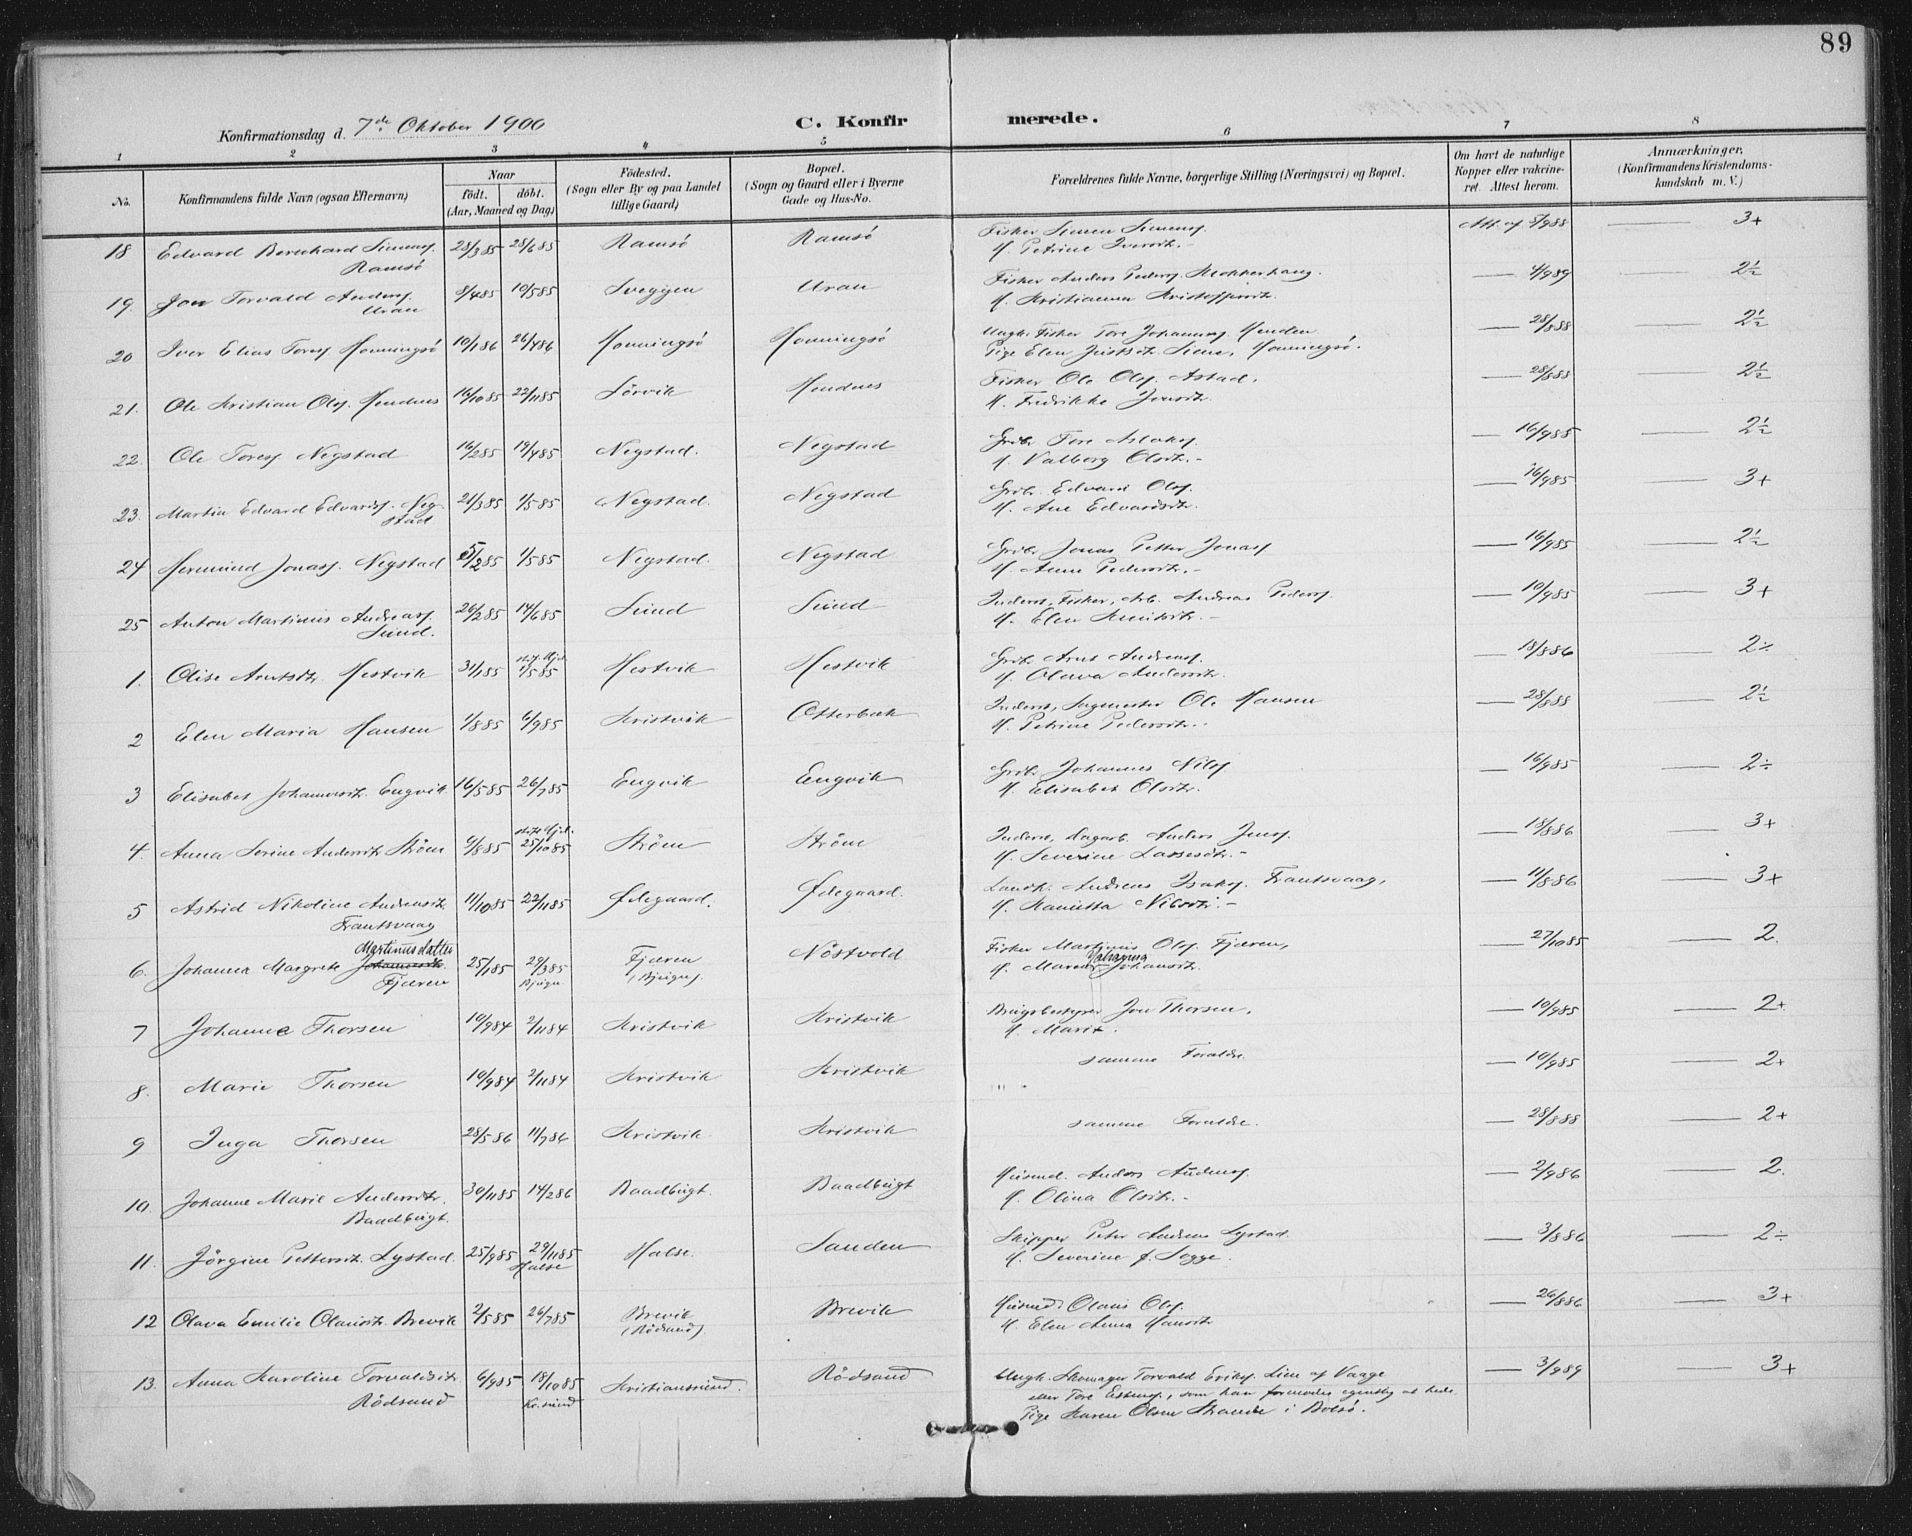 89
Konfirmationsdag d. 7de Oktober 1900 C. Konfir merede.
1 2 3 4 5 6 7 8
No. Konfirmandens fulde Navn (ogsaa Efternavn) Naar født. døbt. (Aar, Maaned og Dag) Fødested. (Sogn eller By og paa Landet tillige Gaard) Bopæl. (Sogn og Gaard eller i Byerne Gade og Hus-No. Forældrenes fulde Navne, borgerlige Stilling (Næringsvei) og Bopæl. Om havt de naturlige Kopper eller vakcineret. Attest herom. Anmærkninger, (Konfirmandens Kristendomskundskab m. V.)
18 Edvard Bernhard Simens. 28/3 85 28/6 85 Ramsø Ramsø Fisker Simen Simens. Att. af 5/9 88 — 3+
Ramsø H. Petrine Iversdtr.
19. Jon Torvald Anders. 9/4 85 10/5 85 Sveggen Uran Fisker Anders Peders. Klokkerhaug. — 4/9 89 — 2½
Uran H. Kristianna Kristoffersdtr.
20 Iver Elias Tores. Honningsø 10/1 86 26/4 86 Honningsø Honningsø Ungk. Fisker Tore Johannes. Henden — 28/8 88 — 2½
Pige Elen Justsdtr. Honningsø.
21. Ole Kristian Ols. Hendnes 16/10 85 22/11 85 Sørvik Hendnes Fisker Ole Ols. Astad. — 28/8 88 — 2½
H. Fredrikke Jonsdtr.
22. Ole Tores. Negstad 16/2 85 19/4 85 Negstad. Negstad Grdbr. Tore Aslaks. — 16/9 85 — 2½
H. Valborg Olsdtr.
23. Martin Edvard Edvards. Neg- 21/3 85 1/5 85 Negstad. Negstad Grdbr. Edvard Ols. — 16/9 85 — 3+
stad H. Ane Edvardsdtr.
24 Hermund Jonas. Negstad 5/2 85 1/5 85 Negstad. Negstad Grdbr. Jonas Petter Jonas. — 16/9 85 — 2½
H. Anne Pedersdtr.
25 Anton Martinus Andreas. 26/2 85 14/6 85 Sund Sund Inderst, Fisker, Arb. Andreas Peders. — 10/9 85 — 3+
Sund. H. Elen Knutsdtr.
1. Olise Arntsdtr. Hestvik 31/1 85 1/5 85 Hestvik Hestvik Grdbr. Arnt Andreas. — 18/8 86 — 2÷
H. Olava Andersdtr.
2 Elen Maria Hansen 1/8 85 6/9 85 Kristvik Otterbæk Inderst, Sagmester Ole Hansen — 28/8 88 — 2½
H. Petrine Pedersdtr.
3 Elisabet Johannesdtr. Engvik 16/5 85 26/7 85 Engvik Engvik Grdbr. Johannes Nils. — 16/9 85 — 2÷
H. Elisabet Olsdtr.
4. Anna Serine Andersdtr. Strøm 9/8 85 25/10 85 Strøm Strøm Inderst, Sagarb. Anders Jens. — 18/8 86 — 3+
H. Severine Lassesdtr.
5 Astrid Nikoline Andreasdtr. 11/10 85 22/11 85 Ødegaard. Ødegaard. Landh. Andreas Isaks. Frantsvaag, — 11/8 86 — 3+
Frantsvaag H. Hanietta Nilsdtr.
6. Johanna Margrete Martinusdatter 25/1 85 29/3 85 Fjæren Nøstvold Fisker Martinus Ols. Fjæren, — 27/10 85 — 2.
Fjæren Bjugn (Bjugn) H. Maren Johansdtr.
7 Johanna Thorsen 10/9 84 2/11 84 Kristvik Kristvik Brugsbestyrer Jon Thorsen, — 10/9 85 — 2+
H. Marit.
8. Marie Thorsen 10/9 84 2/11 84 Kristvik Kristvik samme Forældre — 10/9 85 — 2+
9 Inga Thorsen 28/5 86 11/7 86 Kristvik Kristvik samme Forældre. — 28/8 88 — 2+
10. Johanne Marie Andersdtr. 30/11 85 14/2 86 Baadbugt. Baadbugt Husmd. Anders Anders. — 2/9 86 — 2.
Baadbugt. H. Olina Olsdtr.
11. Jørgine Pettersdtr. Lystad. 25/9 85 29/11 85 Halse. Sanden Skipper Peter Andreas Lystad. — 3/8 86 — 2÷
Halse H. Severine f. Sogge.
12 Olava Emilie Olausdtr. Brevik 2/5 85 26/7 85 Brevik Brevik Husmd. Olaus Ols. — 26/8 86 — 3+
(Rødsand) H. Elen Anna Hansdtr
13. Anna Karoline Torvaldsdtr. 6/9 85 18/10 85 Kristianssund. Rødsand Ungk. Skomager Torvald Eriks. Lien af Vaage — 3/9 89 — 3+
Rødsand Kr.sund eller Tore Estens., som han formodes egentlig at hede
Pige Karen Olsen Strande i Bolsø.